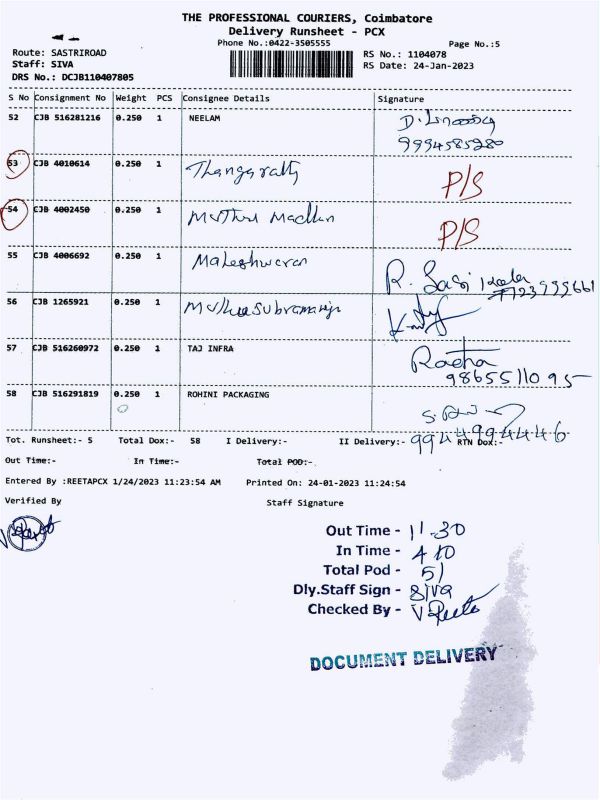 THE PROFESSIONAL COURIERS, Coimbatore
Delivery Runsheet - PCX
Phone No.:0422-3505555
Page No.:5
Route: SASTRIROAD
Staff: SIVA
DRS No.: DCJB110407805
RS No.: 1104078
RS Date: 24-Jan-2023
S No Consignment No Weight PCS Consignee Details Signature
52 CJB 516281216 0.250 1 NEELAM
9994585280
53 CJB 4010614 0.250 1 P/S
54 CJB 4002450 0.250 1 P/S
55 CJB 4006692 0.250 1 Maheshwaran R. Sasi
56 CJB 1265921 0.250 1 Muthusubramaniya
57 CJB 516260972 0.250 1 TAJ INFRA Radha
9865511095
58 CJB 516291819 0.250 1 ROHINI PACKAGING
9944994446
Tot. Runsheet:- 5 Total Dox:- 58 I Delivery:- II Delivery:- RTN Dox:-
Out Time:- In Time:- Total POD:-
Entered By :REETAPCX 1/24/2023 11:23:54 AM Printed On: 24-01-2023 11:24:54
Verified By Staff Signature
Out Time - 11-30
In Time - 4 10
Total Pod - 51
Dly.Staff Sign - Siva
Checked By - V Reeta
DOCUMENT DELIVERY